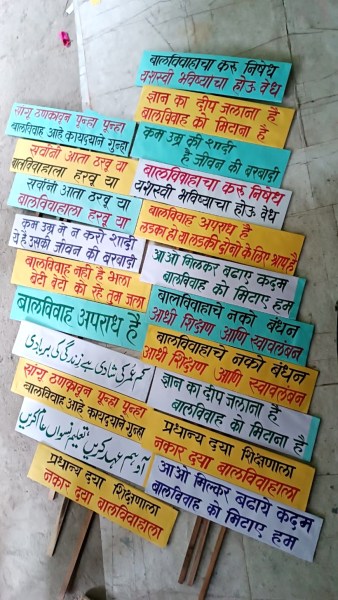 सांगू ठणकावून पुन्हा पुन्हा
बालविवाह आहे कायदयाने गुन्हा
सर्वांनी आता ठरवू या
बालविवाहाला हरवू या
सर्वांनी आता ठरवू या
बालविवाहाला हरवू या
कम उम्र मे न करो शादी
ये है उसकी जीवन की बरबादी
बालविवाह नही है भला
बेटी बेटो को रहे तुम जला
बालविवाह अपराध है
کم عمر کی شادی ہے زندگی کی بربادی
सांगू ठणकावून पुन्हा पुन्हा
बालविवाह आहे कायदयाने गुन्हा
آو ہم عہد کریں تعلیم نسواں عام کریں
प्रधान्य दया शिक्षणाला
नकार दया बालविवाहाला
बालविवाहाचा करू निषेध
यशस्वी भविष्याचा होऊ वेध
ज्ञान का दीप जलाना है
बालविवाह को मिटाना है
कम उम्र की शादी
है जीवन की बरबादी
बालविवाहाचा करू निषेध
यशस्वी भविष्याचा होऊ वेध
बालविवाह अपराध है
लडका हो या लडकी दोनो के लिए श्राप है
आओ मिलकर बढाए कदम
बालविवाह को मिटाए हम
बालविवाहाचे नको बंधन
आधी शिक्षण आणि स्वावलंबन
बालविवाहाचे नको बंधन
आधी शिक्षण आणि स्वावलंबन
ज्ञान का दीप जलाना है
बालविवाह को मिटाना है
प्रधान्य दया शिक्षणाला
नकार दया बालविवाहाला
आओ मिल्कर बढाये कदम
बालविवाह को मिटाए हम